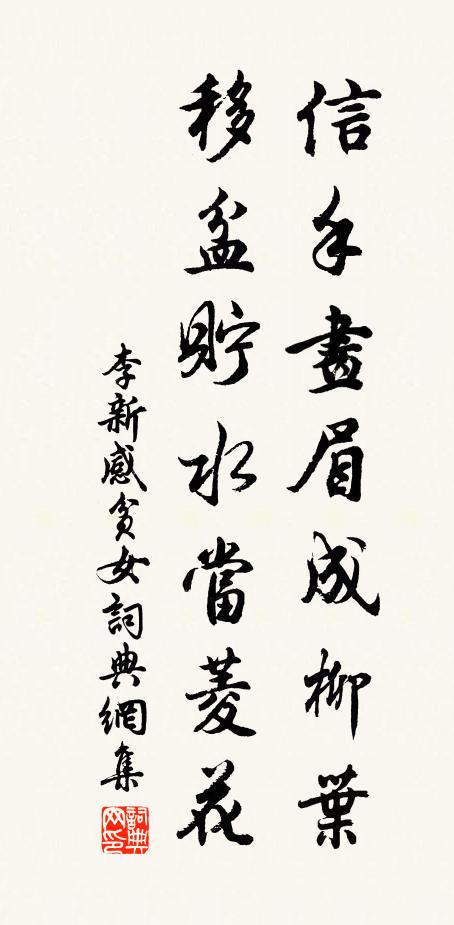 信手畫眉成柳葉
移盆貯水當菱花
李新感貧女詞典網集
詞典網印